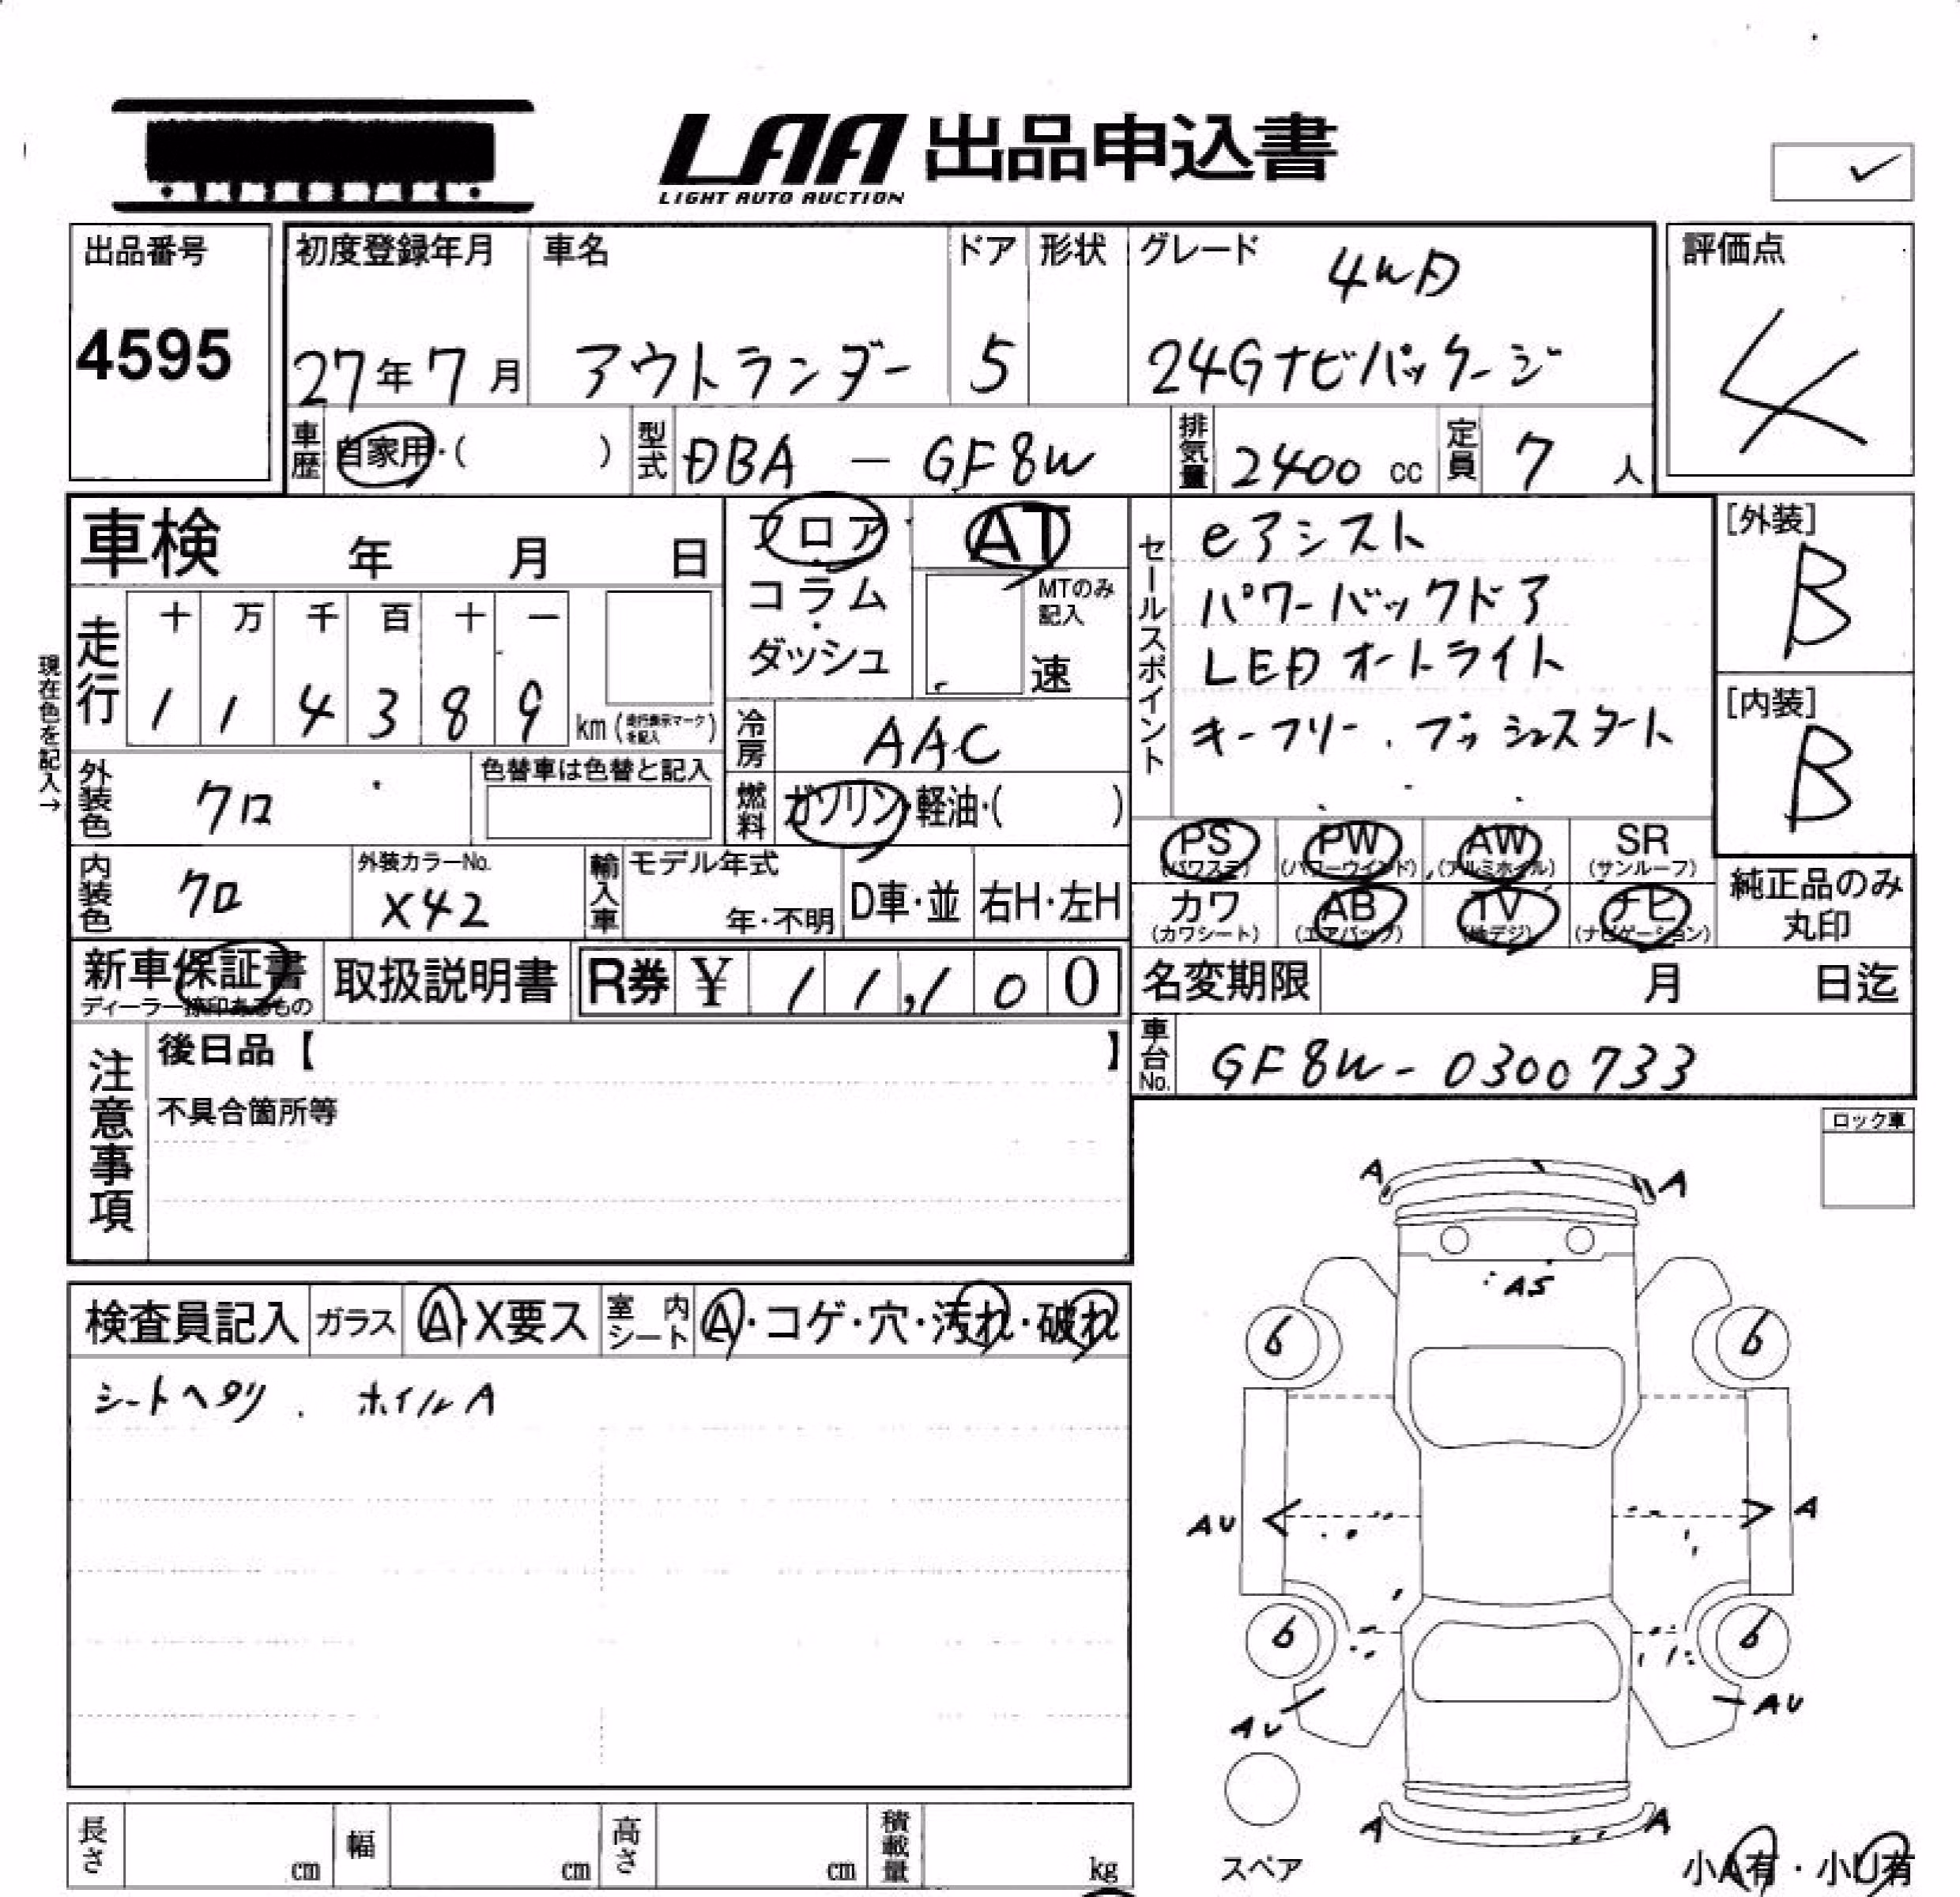 LAA 出品申込書
LIGHT AUTO AUCTION
出品番号
4595
初度登録年月
27年7月
車名
アウトランダー
ドア
5
形状
グレード
4WD
24Gナビパッケージ
評価点
4
車歴 自家用・( )
型式 DBA - GF8W
排気量 2400 cc
定員 7 人
車検 年 月 日
フロア・コラム・ダッシュ
AT
MTのみ記入
速
セールスポイント
eアシスト
パワーバックドア
LEDオートライト
キーフリー.プッシュスタート
[外装]
B
[内装]
B
現在色を記入→
走行
十 万 千 百 十 一
1 1 4 3 8 9 km (走行表示マークを記入)
冷房 AAC
燃料 ガソリン・軽油・( )
外装色 クロ
色替車は色替と記入
内装色 クロ
外装カラーNo.
X42
輸入車 モデル年式
年・不明
D車・並
右H・左H
PS (パワステ)
PW (パワーウインド)
AW (アルミホイル)
SR (サンルーフ)
カワ (カワシート)
AB (エアバック)
TV (地デジ)
ナビ (ナビゲーション)
純正品のみ丸印
新車保証書
ディーラー捺印あるもの
取扱説明書
R券 ¥ 11,100
名変期限 月 日迄
車台No. GF8W-0300733
注意事項
後日品【 】
不具合箇所等
ロック車
検査員記入 ガラス A・X要ス 室内シート A・コゲ・穴・汚れ・破れ
シートヘタリ . ホイルA
A A
AS
6 6
AU A
6 6
AU AU
A A
スペア
小A有・小U有
長さ cm 幅 cm 高さ cm 積載量 kg